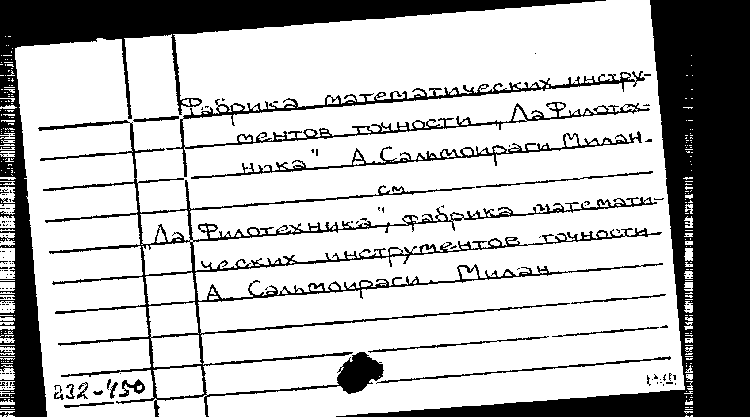 Фабрика математических инстру-
ментов точности „Ла Филотех-
ника" А. Сальмоираги Милан.
см.
„Ла Филотехника", фабрика математи-
ческих инструментов точности
А. Сальмоираги. Милан
232-450